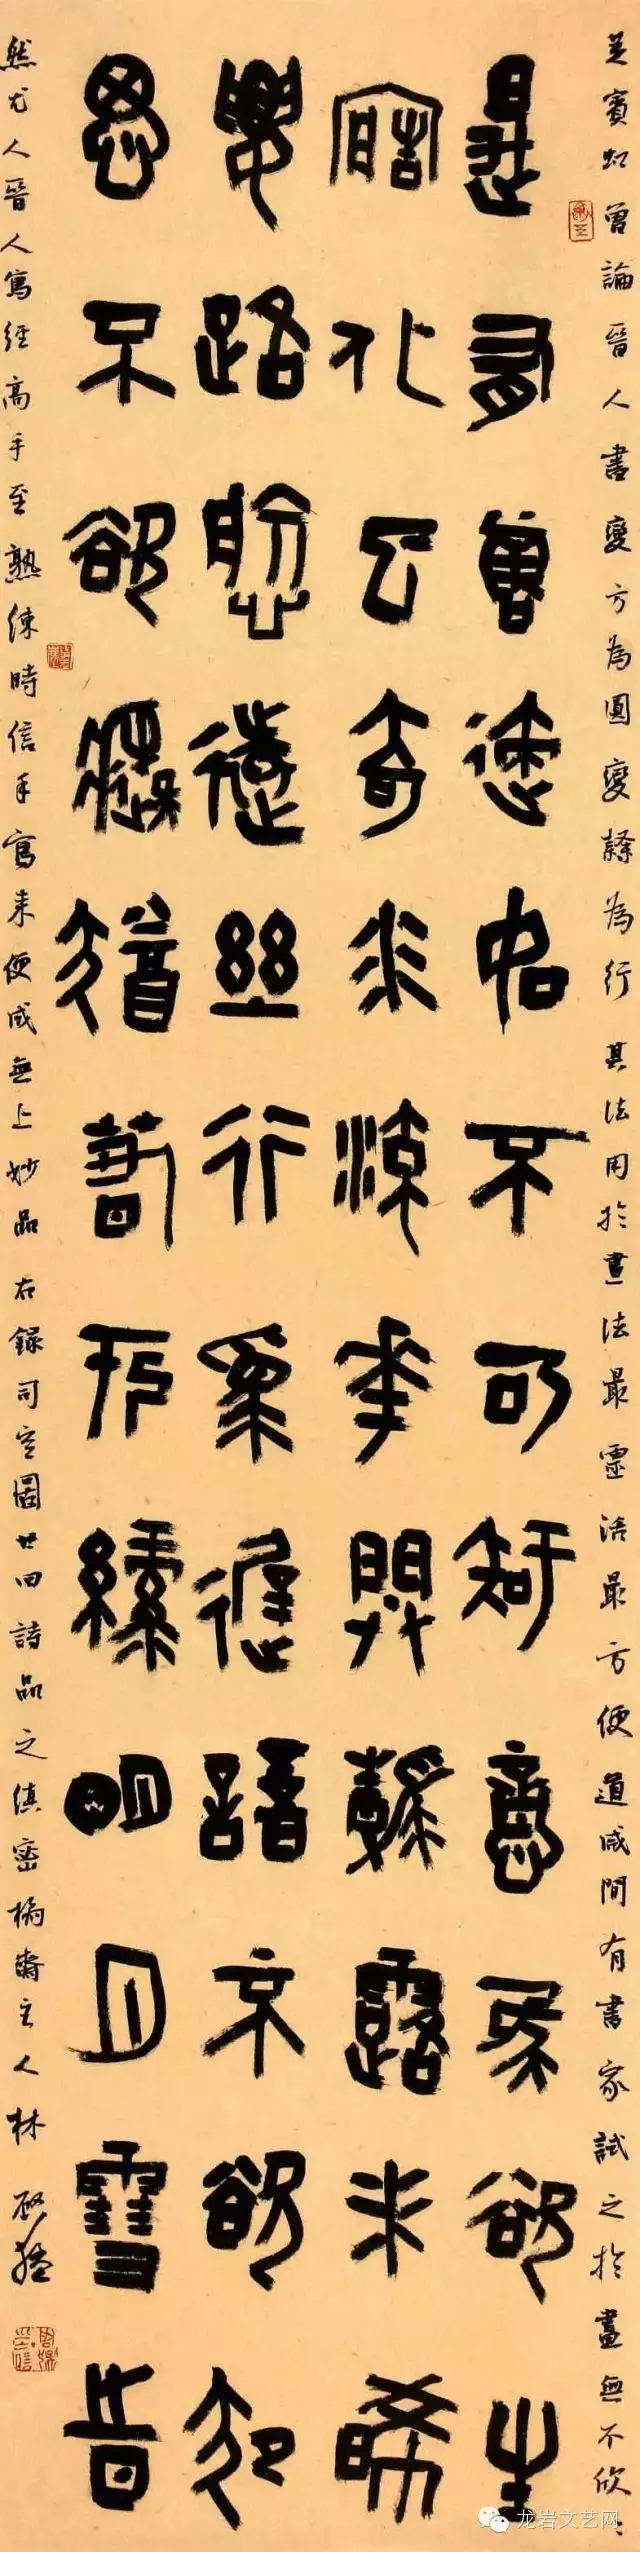 黃賓虹曾論晉人書變方為圓變隸為行其法用於畫法最靈活最方便道咸間有書家試之於畫無不欣〻
是有真迹如不可知意象欲生
造化已奇水流花開清露未晞
要路愈遠幽行為遲語不欲犯
思不欲癡猶春於綠明月雪時
然尤人晉人寫經高手至熟練時信手寫來便成無上妙品右錄司空圖廿四詩品之縝密 齋主人林
龙岩文艺网